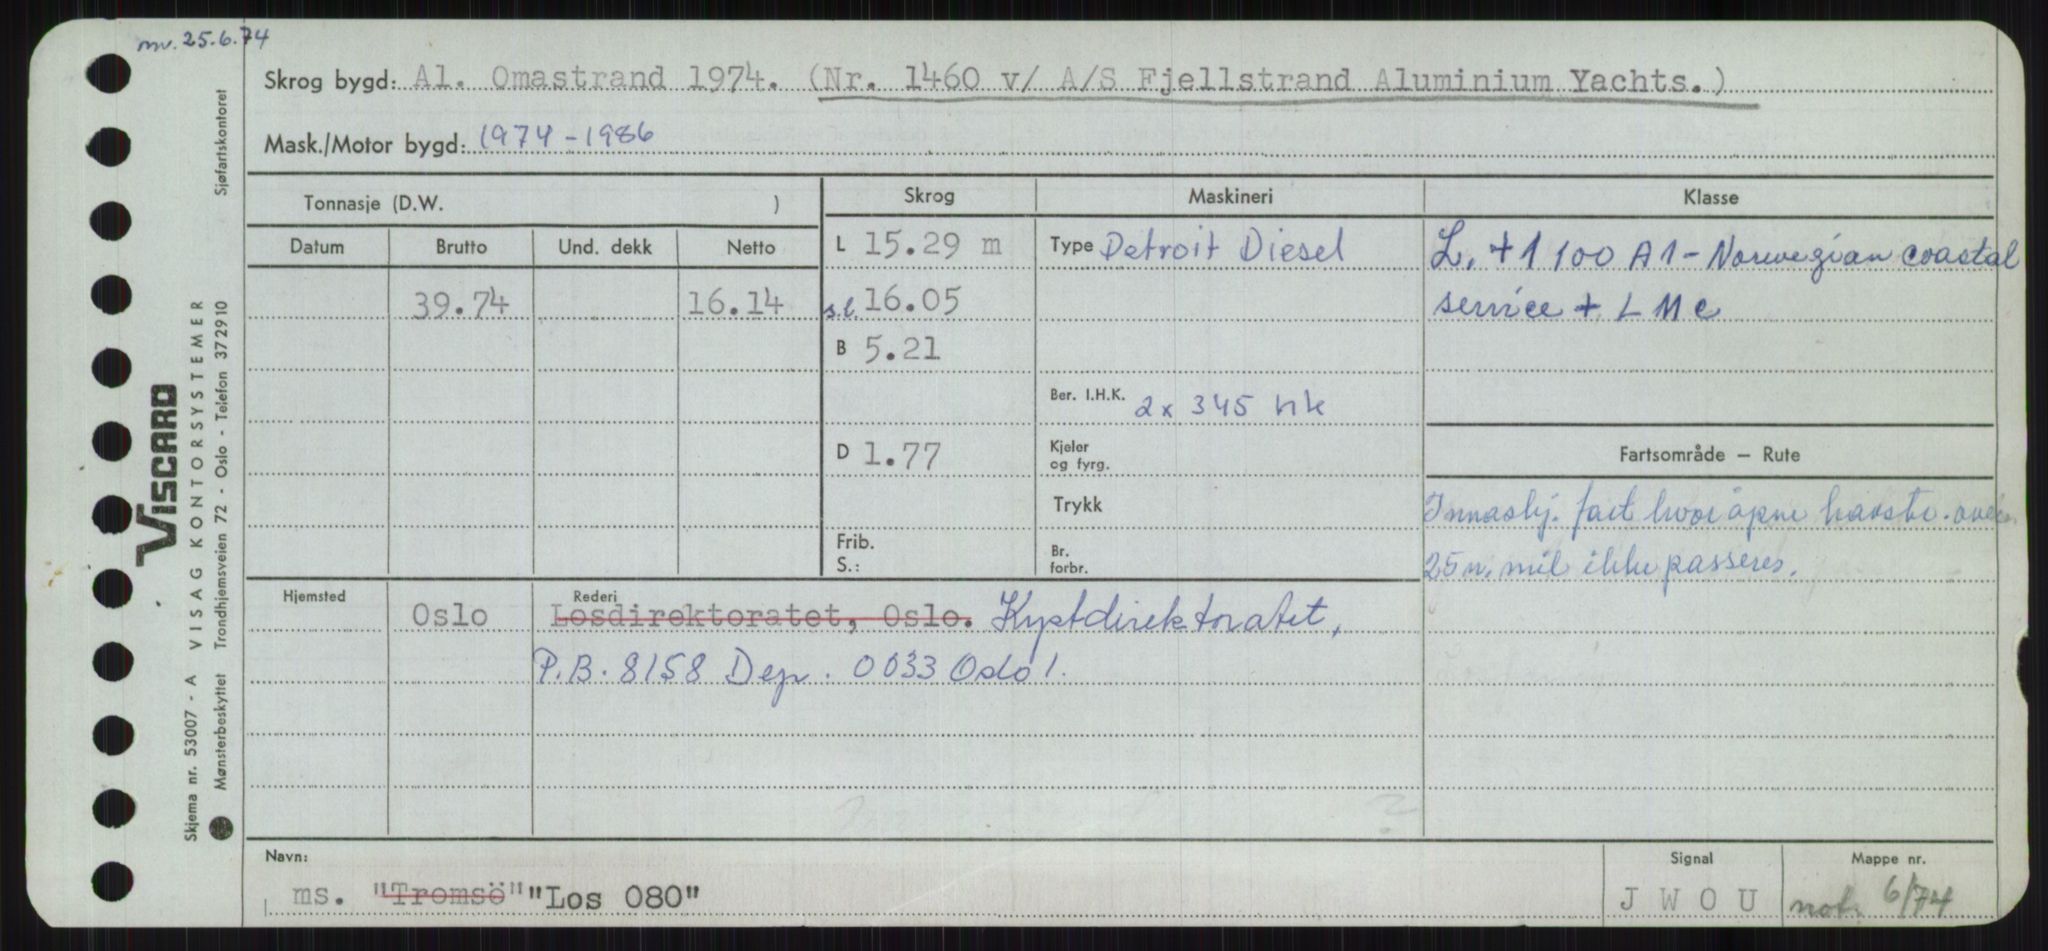 mv. 25.6.74
Skrog bygd: Al. Omastrand 1974. (Nr. 1460 v/ A/S Fjellstrand Aluminium Yachts.)
Mask./Motor bygd: 1974-1986
Tonnasje (D.W. )
Skrog
Maskineri
Klasse
Datum
Brutto
Und. dekk
Netto
L 15.29 m
Type Detroit Diesel
L. +1 100 A1 - Norwegian coastal
39.74
16.14
s.l. 16.05
service + L M C
B 5.21
Ber. I.H.K. 2x 345 hk
D 1.77
Kjeler
og fyrg.
Fartsområde — Rute
Trykk
Innaskj. fart hvor åpne havstr. over
Frib.
S.:
Br.
forbr.
25 n. mil ikke passeres.
Hjemsted
Rederi
Oslo
Losdirektoratet, Oslo. Kystdirektoratet,
P.B. 8158 Dep. 0033 Oslo 1.
Navn:
ms. "Tromsö" "Los 080"
Signal
J W O U
Mappe nr.
not. 6/74
VISCARD
VISAG KONTORSYSTEMER
Sjøfartskontoret
Skjema nr. 53007 - A
Mønsterbeskyttet Trondhjemsveien 72 - Oslo - Telefon 372910